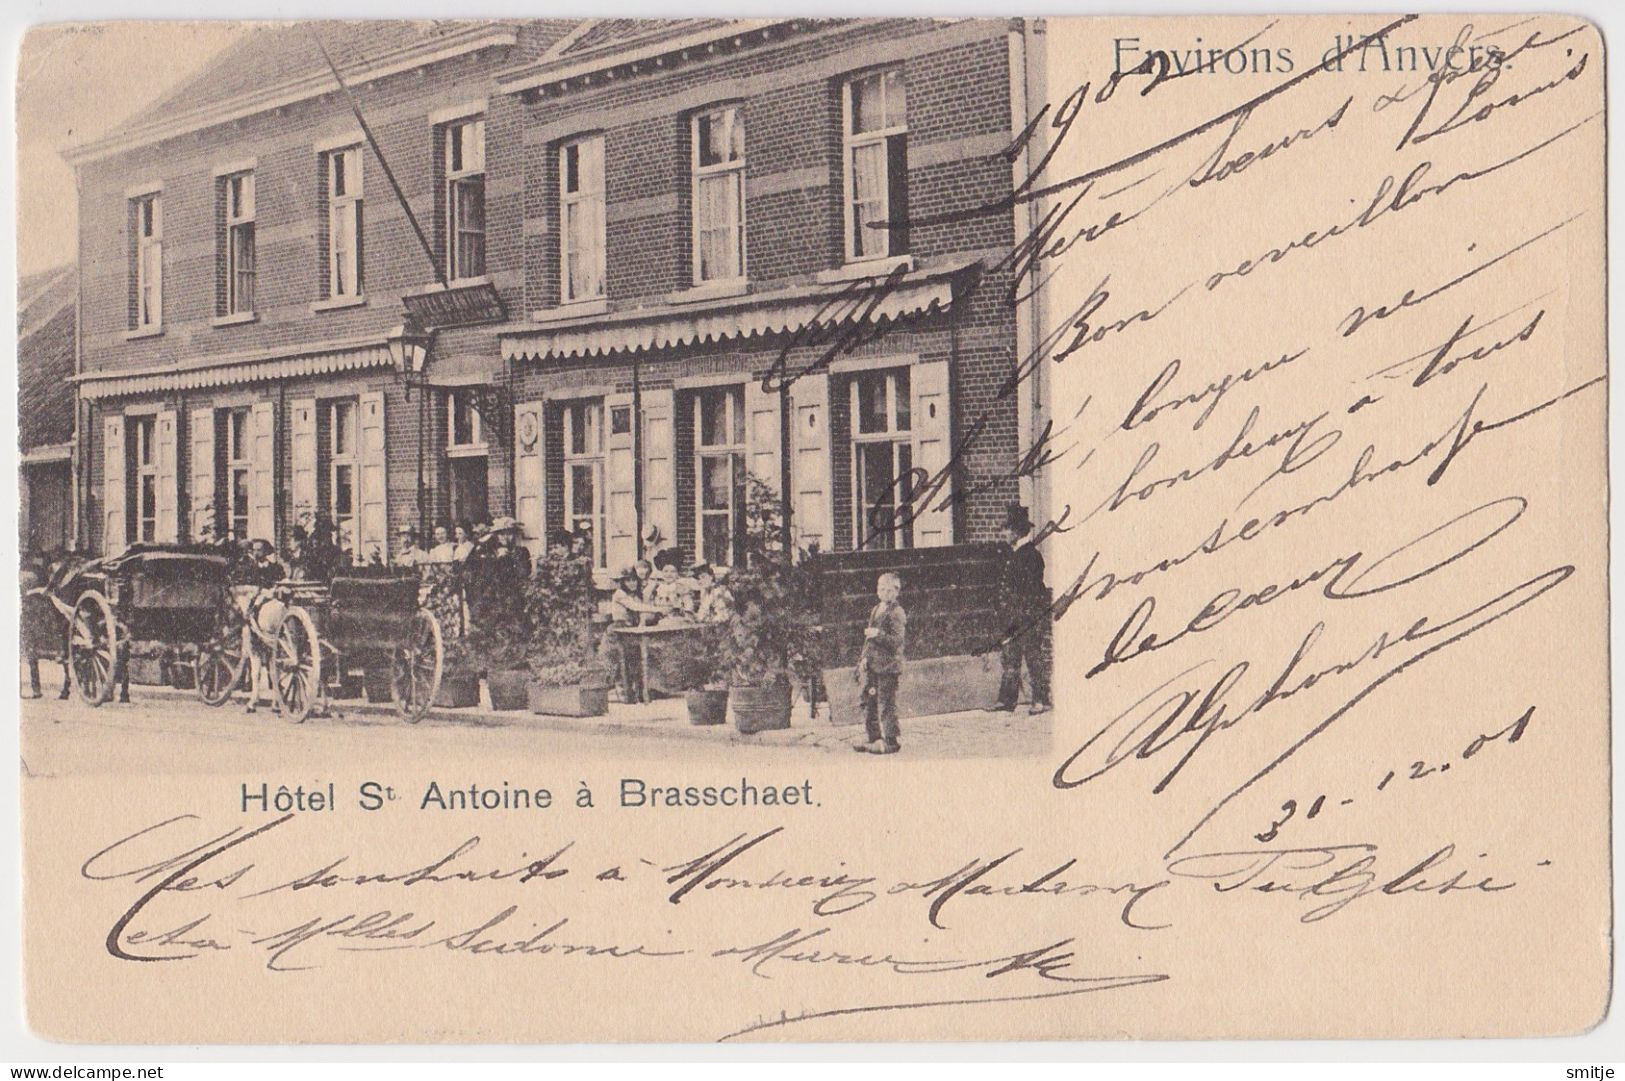 Environs d'Anvers.
1902
Chers Mère Sœurs & frère
Louis
Bon reveillon
Santé, longue vie
& bonheur à tous
vous embrasse
de Cœur
Alphonse
31-12.01
Hôtel St. Antoine à Brasschaet.
Mes souhaits à Monsieur Madame
et à Mlles Sidonie Marie
smitje